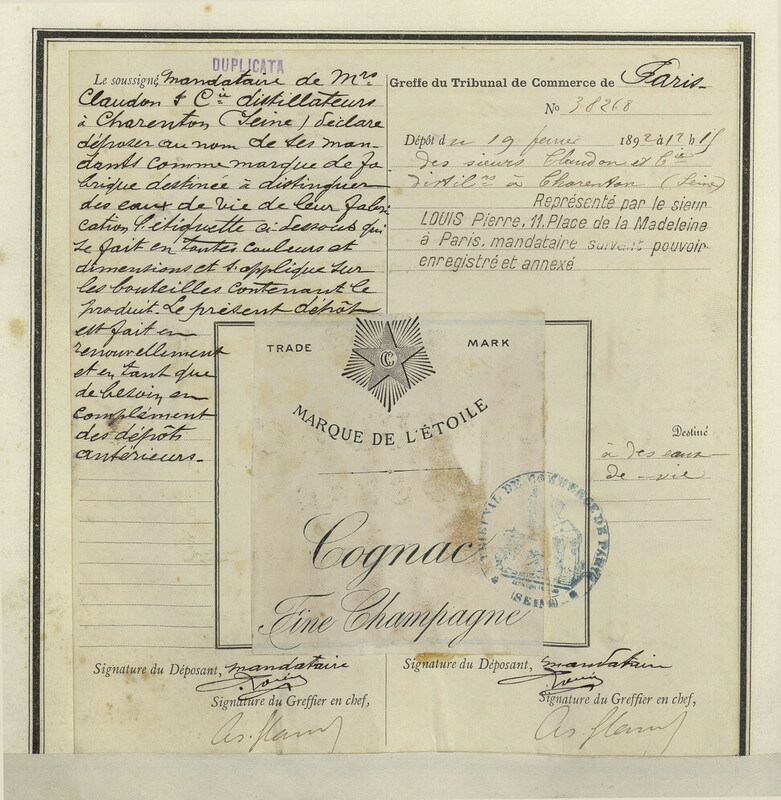 DUPLICATA
Le soussigné, mandataire de Mrs
Claudon & Cie distillateurs
à Charenton (Seine) déclare
déposer au nom de ses man-
dants comme marque de fa
brique destinée à distinguer
des eaux de vie de leur fabri
cation l'étiquette ci-dessous qui
se fait en toutes couleurs et
dimensions et s'applique sur
les bouteilles contenant le
produit. Le présent dépôt
est fait en
renouvellement
et en tant que
de besoin en
complément
des dépôts
antérieurs.-
Greffe du Tribunal de Commerce de Paris-
No 38268
Dépôt du 19 février 1892 à 12 h 15
des sieurs Claudon et Cie
distilrs à Charenton (Seine)
Représenté par le sieur
LOUIS Pierre, 11, Place de la Madeleine
à Paris, mandataire suivant pouvoir
enregistré et annexé
TRADE MARK
CC
MARQUE DE L'ÉTOILE
Cognac
Fine Champagne
Destiné
à des eaux
de-vie
TRIBUNAL DE COMMERCE DE PARIS
(SEINE)
Signature du Déposant, mandataire
Louis
Signature du Greffier en chef,
Signature du Déposant, mandataire
Louis
Signature du Greffier en chef,